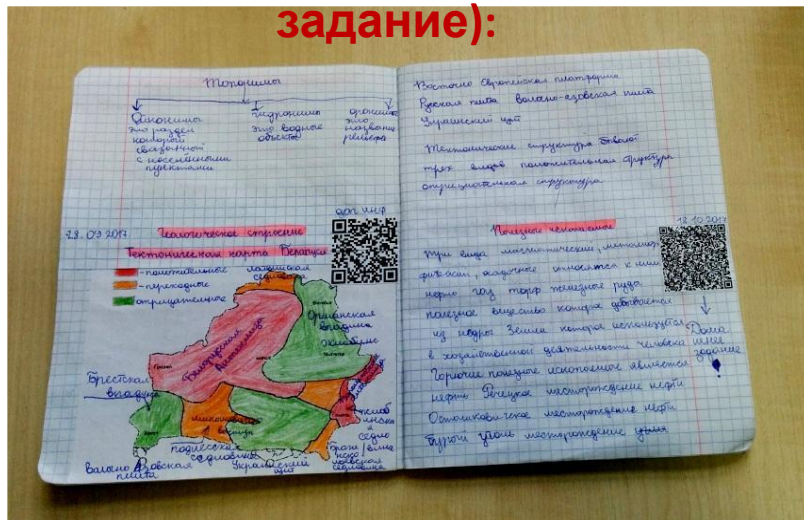 задание):
Топонимы
Ойконимы
это раздел
который
связанной
с населёнными
пунктами
гидронимы
это водные
объекты
оронимы
это
название
рельефа
28.09.2017 Геологическое строение
доп инф
Тектоническая карта Беларуси
-положительные
-переходные
-отрицательные
латвийская
седловина
Оршанская
впадина
Белорусская
Антеклиза
Брестская
впадина
Полесская
седловина
Украинский
щит
плита
седловина
Восточно Европейская платформа
Русская плита Волано-азовская плита
Украинский щит
Тектонические структура бывают
трех видов положительная структура
отрицательная структура
Полезные ископаемое
18.10.2017
три вида магматический,
осадочные относятся к ним
нефть газ торф железные руда
полезное вещество которое добывается
из недры Земли которое используется
в хозяйственной деятельности человека
Горючие полезное ископаемое является
нефть Речецкое месторождение нефти
Осташковичское месторождение нефти
бурый уголь месторождение угля
Дома
шнее
задание
!